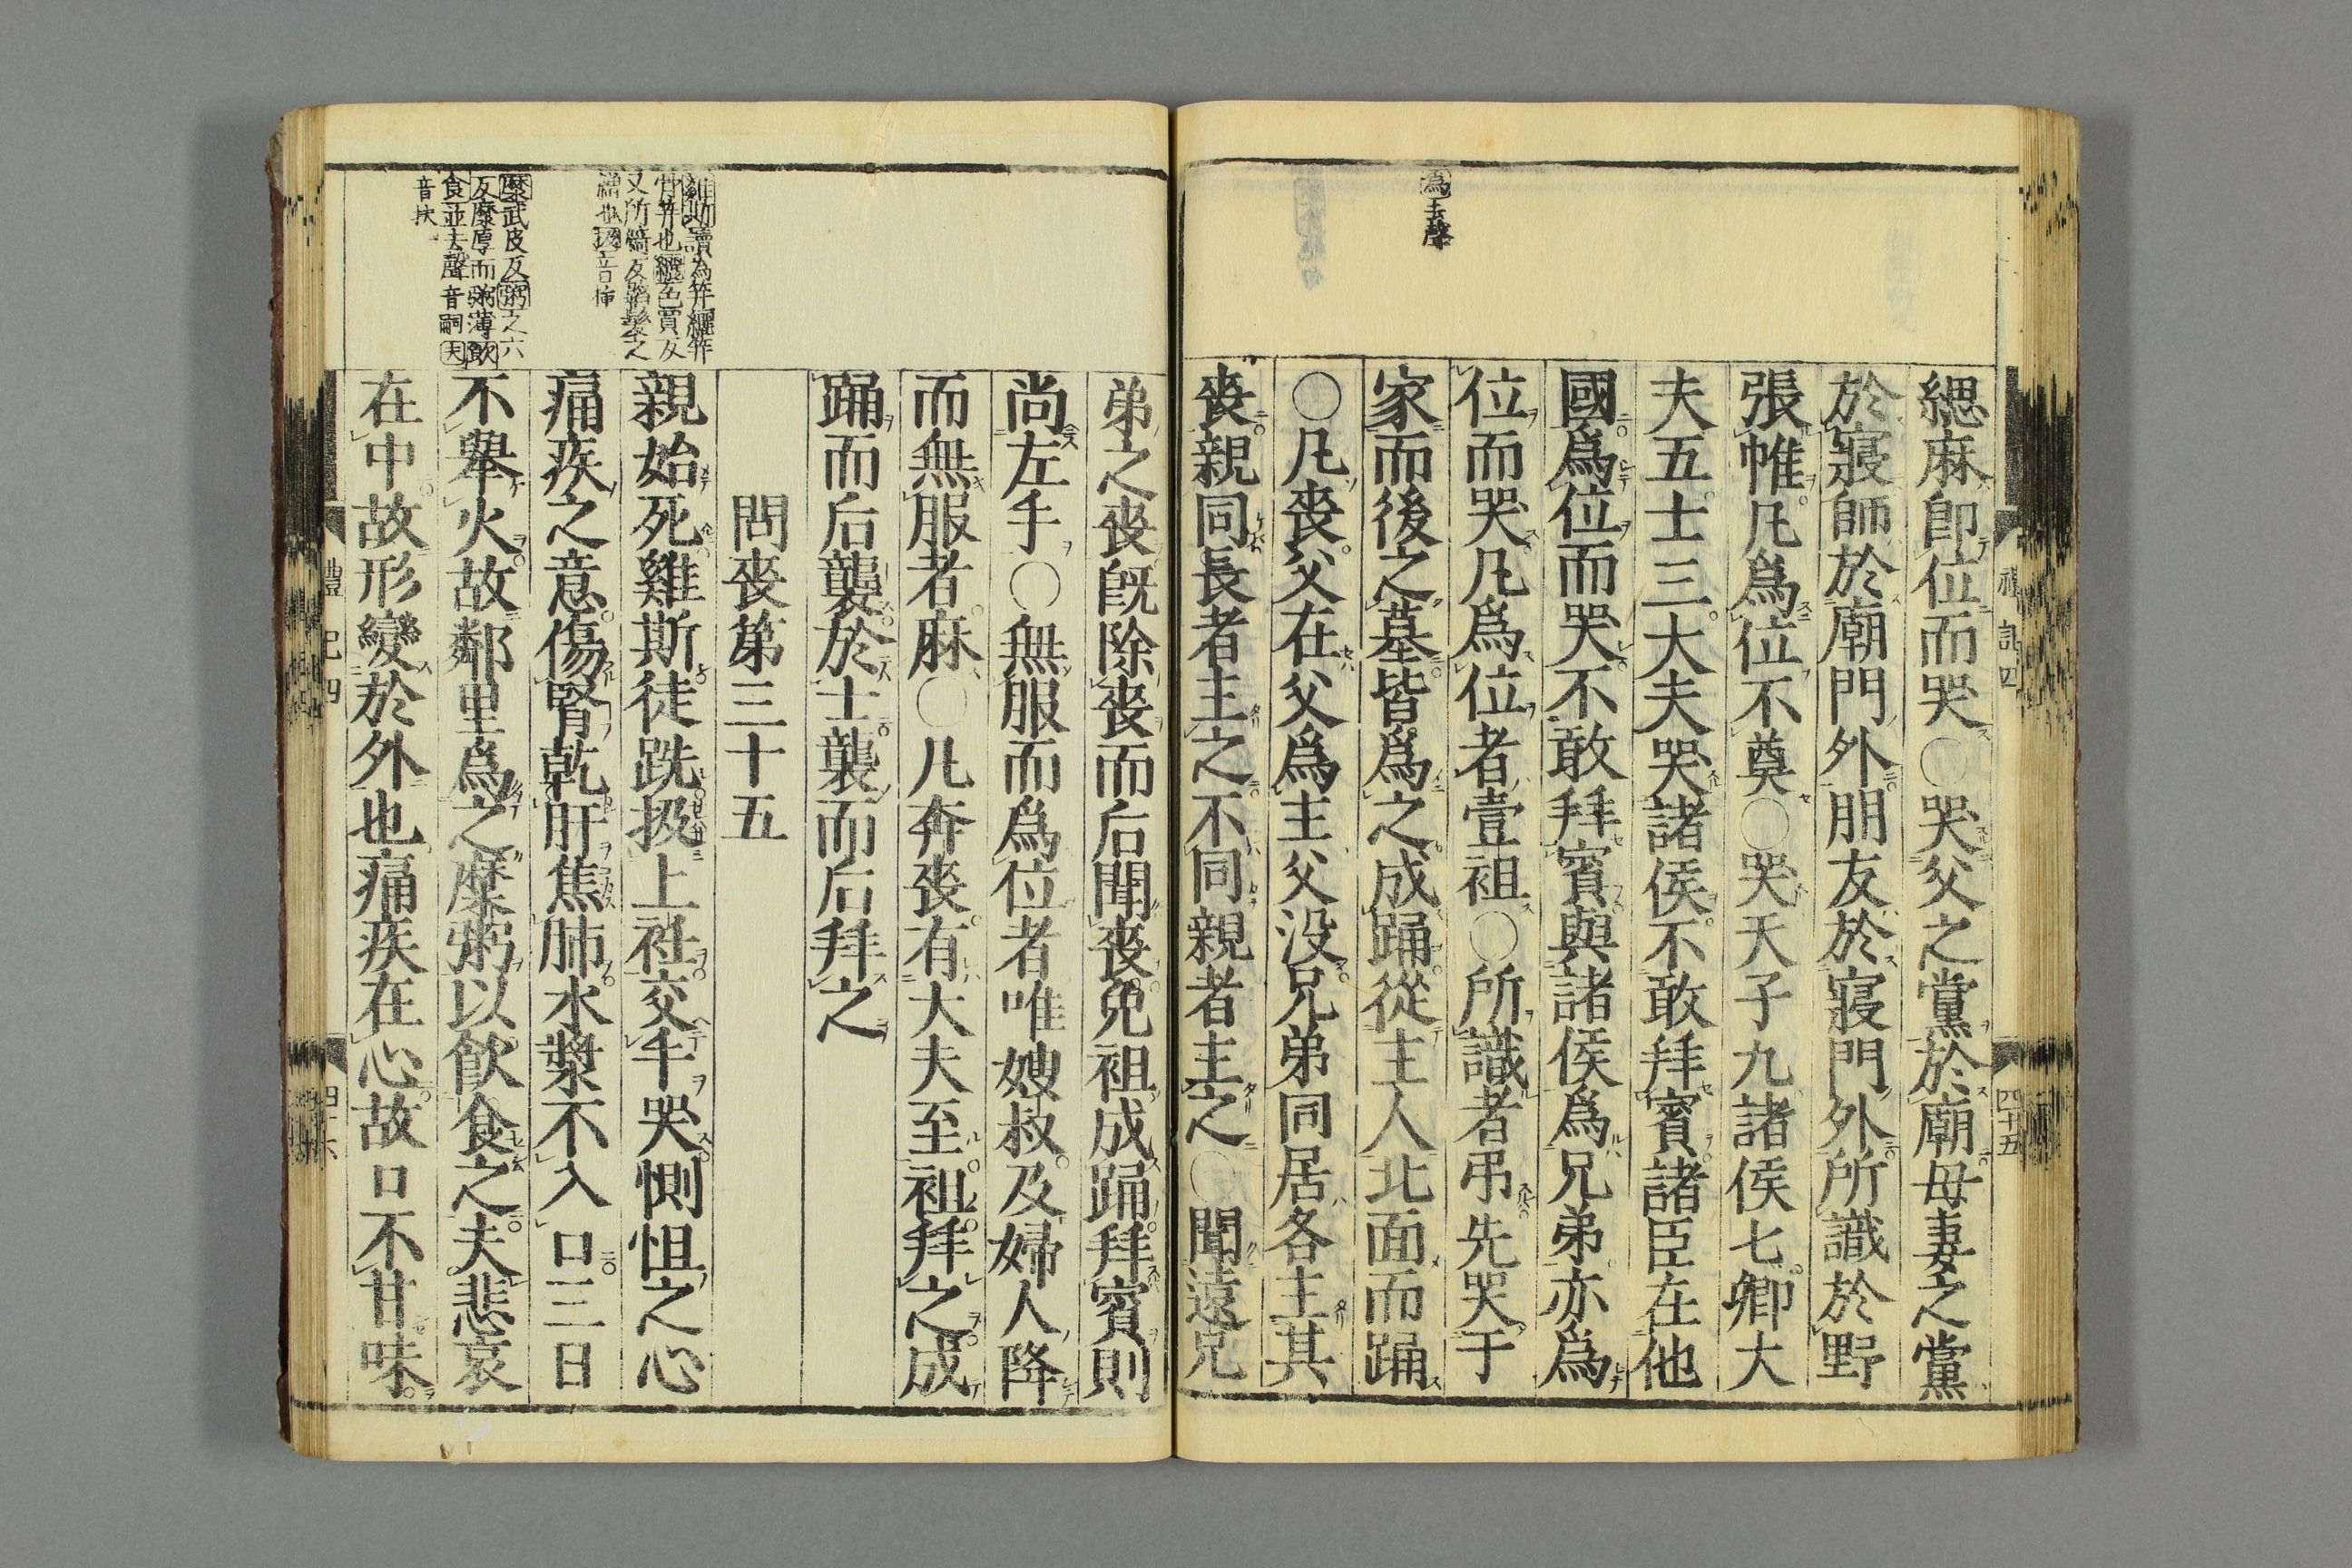 爲去聲
緦麻卽位而哭〇哭父之黨於廟母妻之黨
於寢師於廟門外朋友於寢門外所識於野
張帷凡爲位不奠〇哭天子九諸侯七卿大
夫五士三大夫哭諸侯不敢拜賓諸臣在他
國爲位而哭不敢拜賓與諸侯爲兄弟亦爲
位而哭凡爲位者壹袒〇所識者弔先哭于
家而後之墓皆爲之成踊從主人北面而踊
〇凡喪父在父爲主父没兄弟同居各主其
喪親同長者主之不同親者主之〇聞遠兄
弟之喪旣除喪而后聞喪免袒成踊拜賓則
尚左手〇無服而爲位者唯嫂叔及婦人降
而無服者麻〇凡奔喪有大夫至袒拜之成
踊而后襲於士襲而后拜之
問喪第三十五
雞斯讀為笄纚笄
骨笄也纚色買反
又所綺反韜髮之
繒也扱音插
親始死雞斯徒跣扱上衽交手哭惻怛之心
痛疾之意傷腎乾肝焦肺水漿不入口三日
糜武皮反粥之六
反糜厚而粥薄飲
食並去聲音嗣夫
音扶
不舉火故鄰里爲之糜粥以飮食之夫悲哀
在中故形變於外也痛疾在心故口不甘味
禮記四
四十五
禮記四
四十六